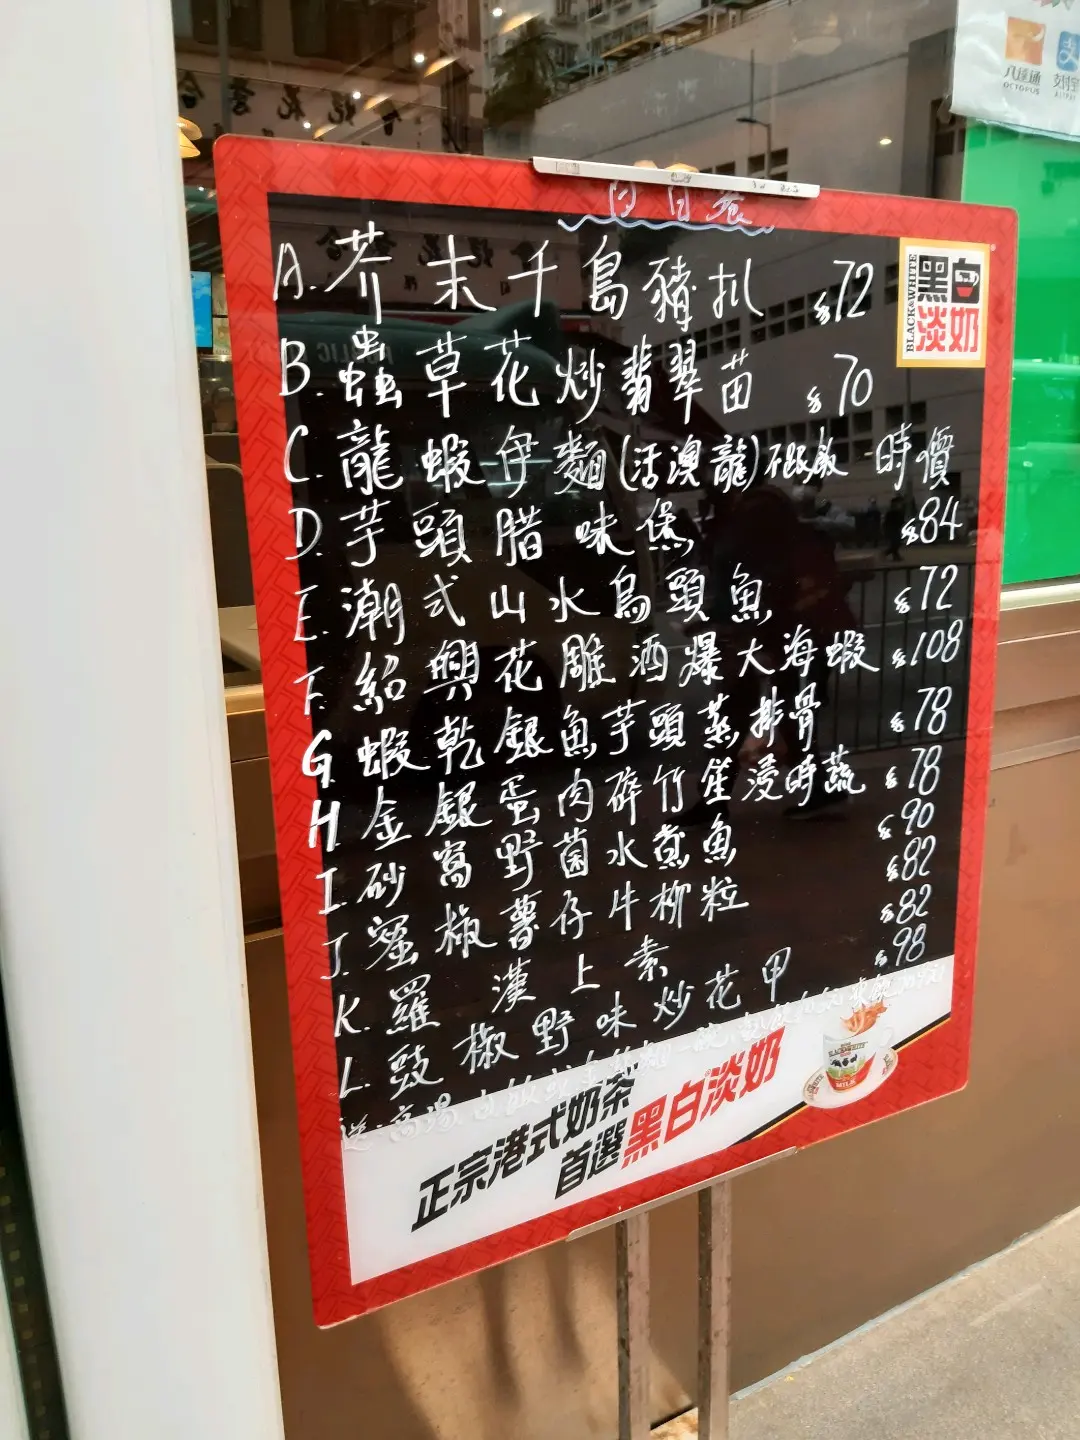 八達通
OCTOPUS
支付宝
日日餐
BLACK&WHITE
黑白
淡奶
A. 芥末千島豬扒 $72
B. 蟲草花炒翡翠苗 $70
C. 龍蝦伊麵(活澳龍)不跟飯 時價
D. 芋頭腊味煲 $84
E. 潮式山水烏頭魚 $72
F. 紹興花雕酒爆大海蝦 $108
G. 蝦乾銀魚芋頭蒸排骨 $78
H. 金銀蛋肉碎竹笙浸時蔬 $78
I. 砂窩野菌水煮魚 $90
J. 蜜椒薯仔牛柳粒 $82
K. 羅漢上素 $82
L. 豉椒野味炒花甲 $98
正宗港式奶茶
首選黑白淡奶
BLACK&WHITE
MILK